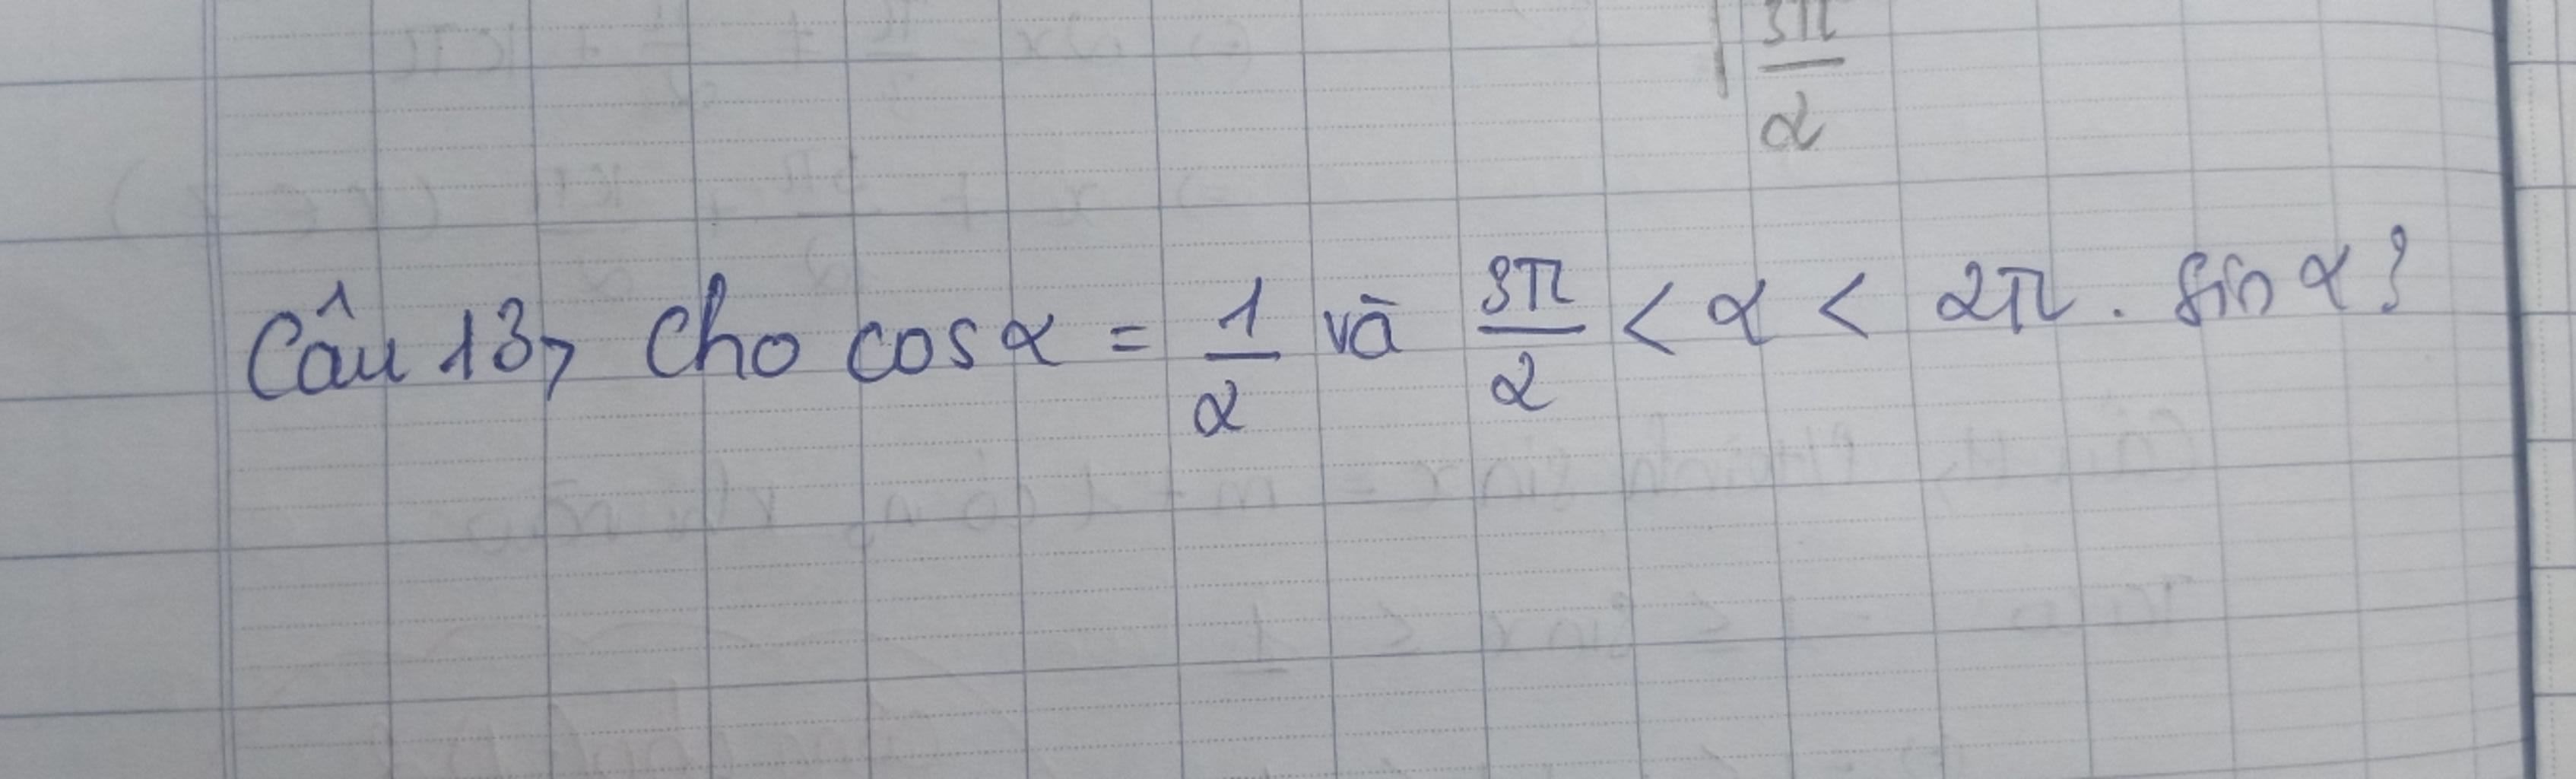 3π/2
Câu 13, Cho cos α = 1/2 và 3π/2 < α < 2π. Sin α?